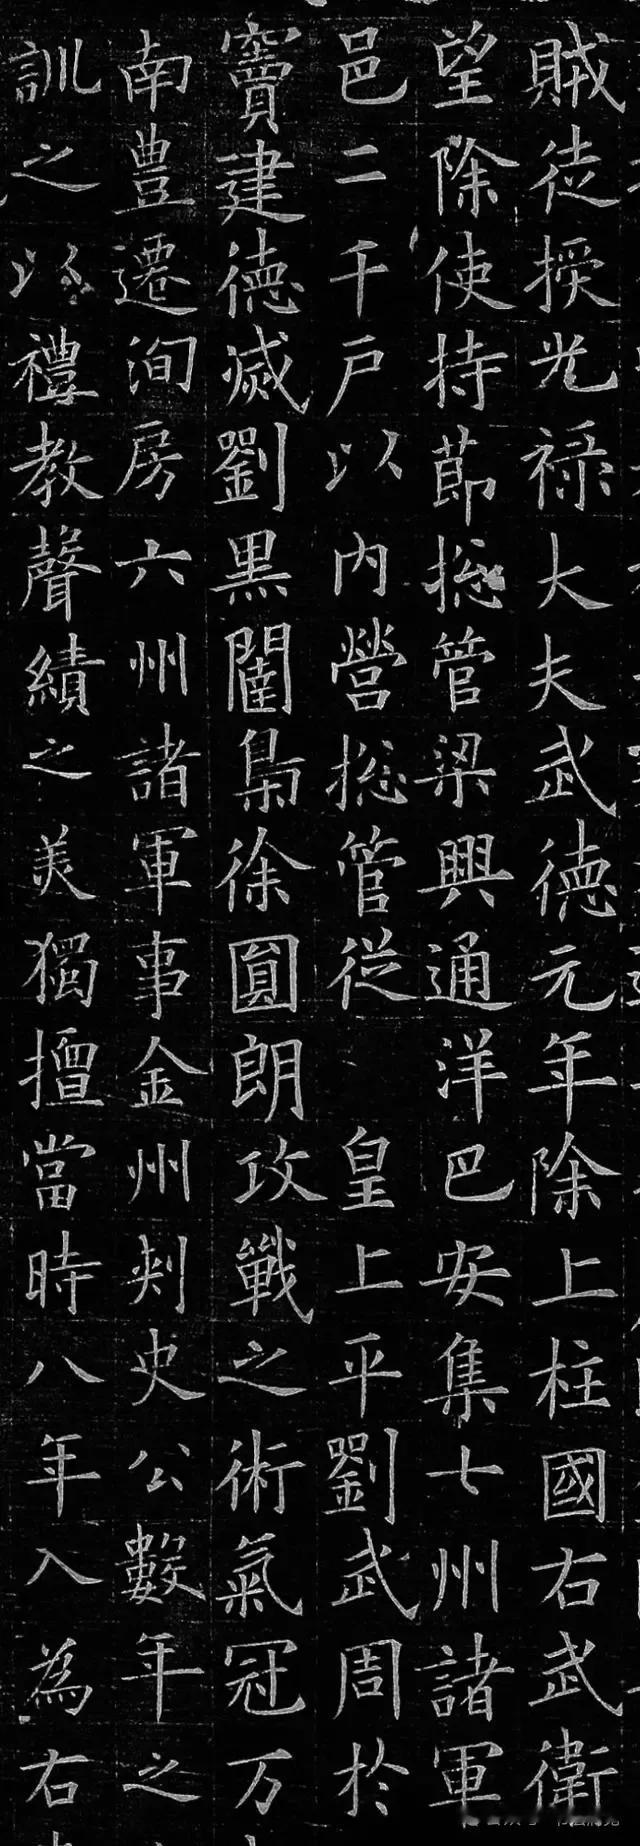 賊徒授光禄大夫武德元年除上柱國右武衛
望除使持節揔管梁興通洋巴安集七州諸軍
邑二千戶以内營揔管從皇上平劉武周於
竇建德滅劉黑闥梟徐圓朗攻戰之術氣冠万
南豊遷洵房六州諸軍事金州刾史公數年之
訓之以禮教聲績之美獨擅當時八年入為右